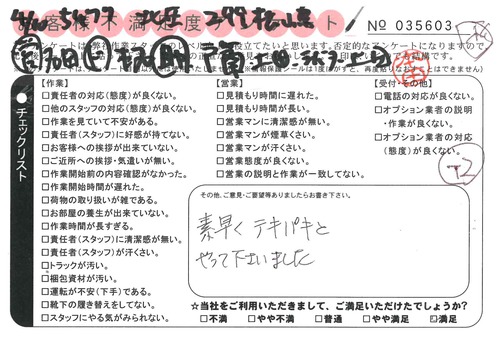 お客様不満足度アンケート
№ 035603
チェックリスト
【作業】
□責任者の対応(態度)が良くない。
□他のスタッフの対応(態度)が良くない。
□作業を見ていて不安がある。
□責任者(スタッフ)に好感が持てない。
□お客様への挨拶が出来ていない。
□ご近所への挨拶・気遣いが無い。
□作業開始前の内容確認がなかった。
□作業開始時間が遅れた。
□荷物の取り扱いが雑である。
□お部屋の養生が出来ていない。
□作業時間が長すぎる。
□責任者(スタッフ)に清潔感が無い。
□責任者(スタッフ)が汗くさい。
□トラックが汚い。
□梱包資材が汚い。
□運転が不安(下手)である。
□靴下の履き替えをしてない。
□スタッフにやる気がみられない。
【営業】
□見積もり時間に遅れた。
□見積もり時間が長い。
□営業マンに清潔感が無い。
□営業マンが煙草くさい。
□営業マンが汗くさい。
□営業態度が良くない。
□営業の説明と作業が一致してない。
【受付・その他】
□電話の対応が良くない。
□オプション業者の説明
・作業が良くない。
□オプション業者の対応
(態度)が良くない。
その他、ご意見・ご要望等ありましたらお書き下さい。
素早くテキパキと
やって下さいました
☆当社をご利用いただきまして、ご満足いただけたでしょうか?
□不満 □やや不満 □普通 □やや満足 ☑満足